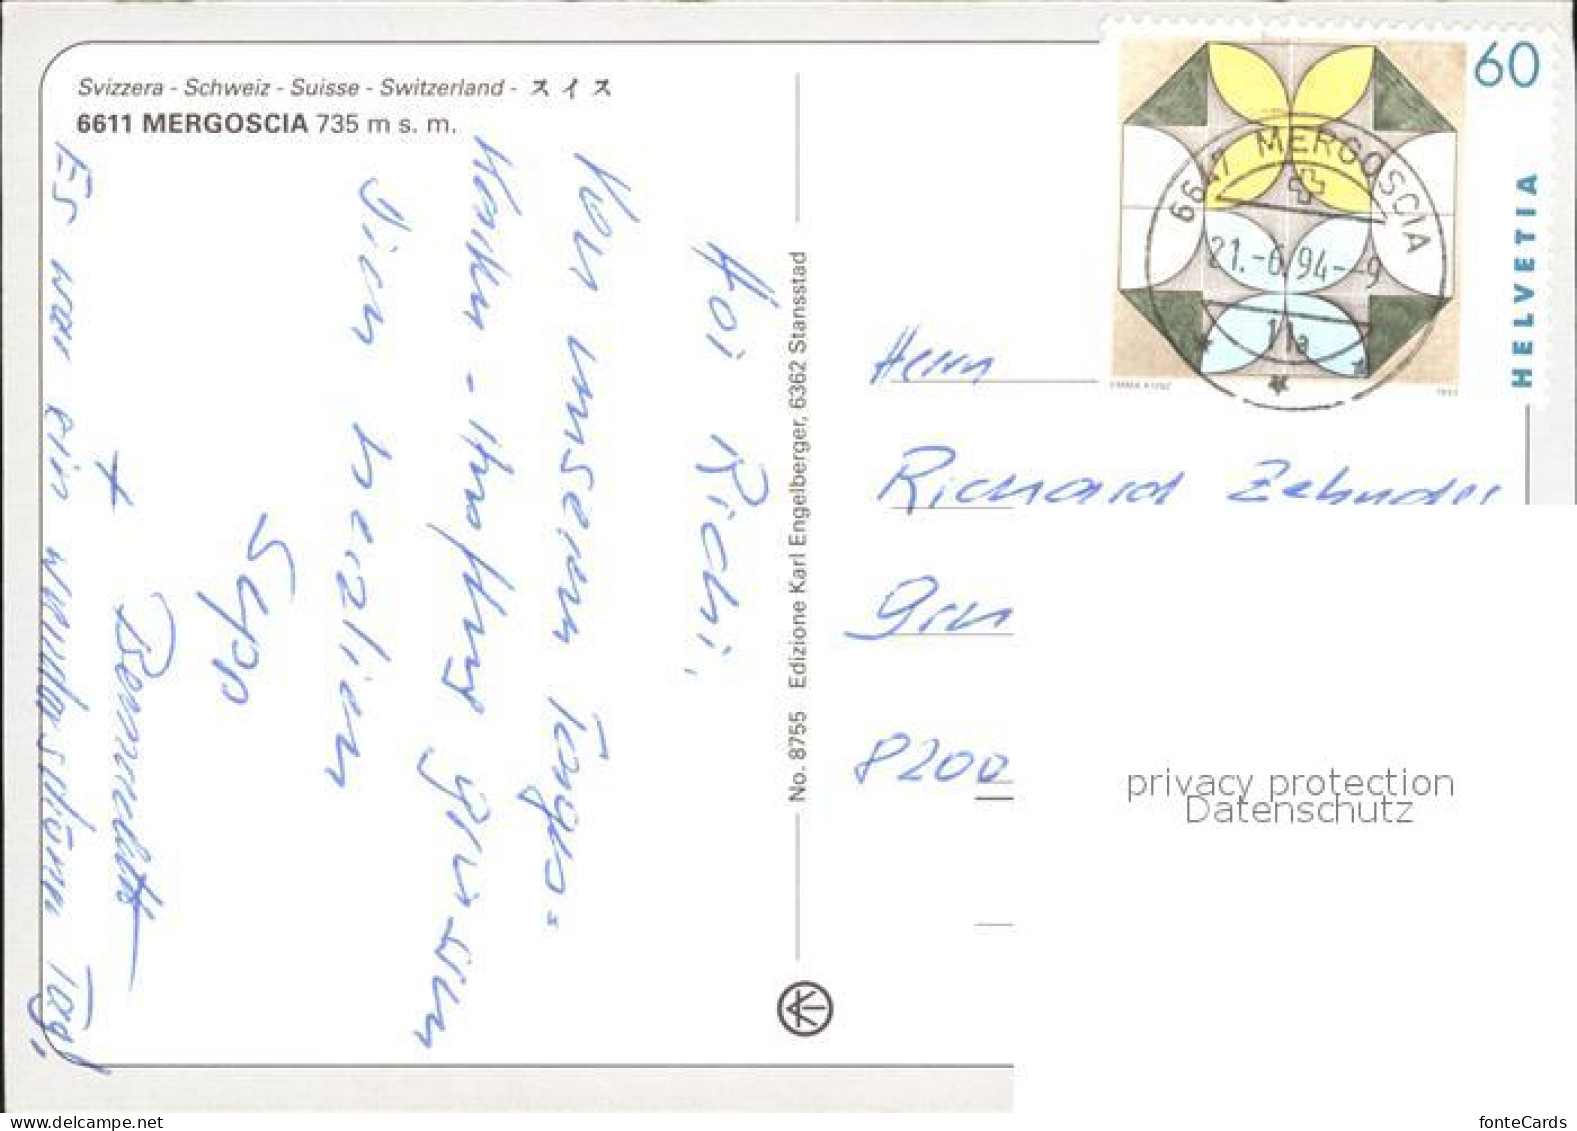 Svizzera - Schweiz - Suisse - Switzerland - スイス
6611 MERGOSCIA 735 m s. m.
Hoi Richi,
Von unserem Tages=
grüssen
Dich herzlich
Sepp
+
Es war ein wunderschöner Tag!
No. 8755 Edizione Karl Engelberger, 6362 Stansstad
60
HELVETIA
EMMA KUNZ 1993
6647 MERGOSCIA
21.-6.94--9
Herrn
Richard Zehnder
8200
privacy protection
Datenschutz
www.delcampe.net
fonteCards